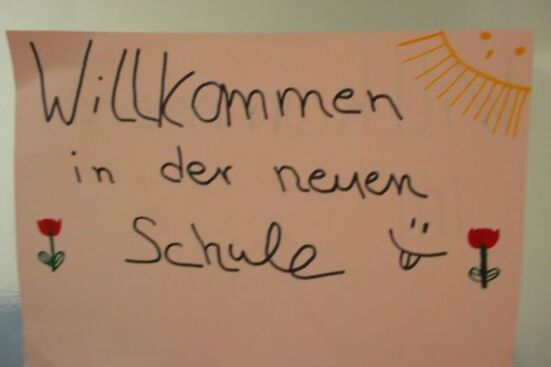 Willkommen
in der neuen
Schule